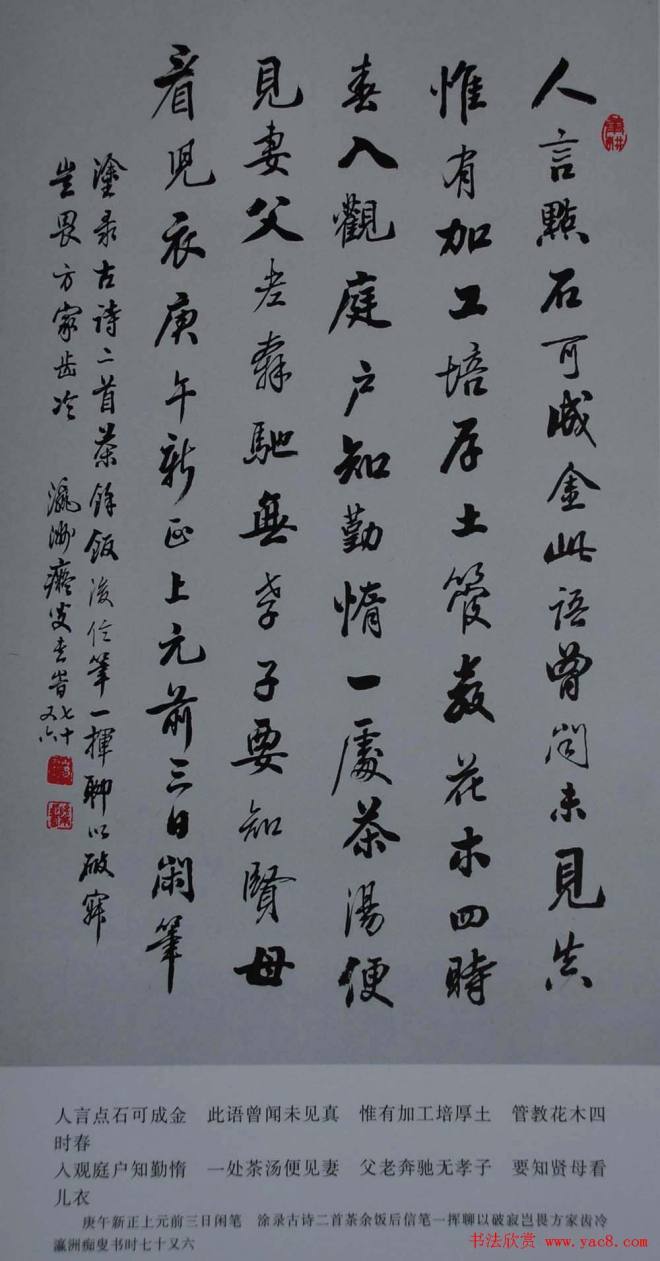 人言點石可成金此語曾聞未見真
惟有加工培厚土管教花木四時
春入觀庭户知勤惰一處茶湯便
見妻父老奔馳無孝子要知賢母
看兒衣庚午新正上元前三日閑筆
塗录古诗二首茶餘飯後信筆一揮聊以破寂
豈畏方家齿冷 瀛洲癡叟書时七十又六
人言点石可成金 此语曾闻未见真 惟有加工培厚土 管教花木四
时春
入观庭户知勤惰 一处茶汤便见妻 父老奔驰无孝子 要知贤母看
儿衣
庚午新正上元前三日闲笔 涂录古诗二首茶余饭后信笔一挥聊以破寂岂畏方家齿冷
瀛洲痴叟书时七十又六
书法欣赏 www.yac8.com